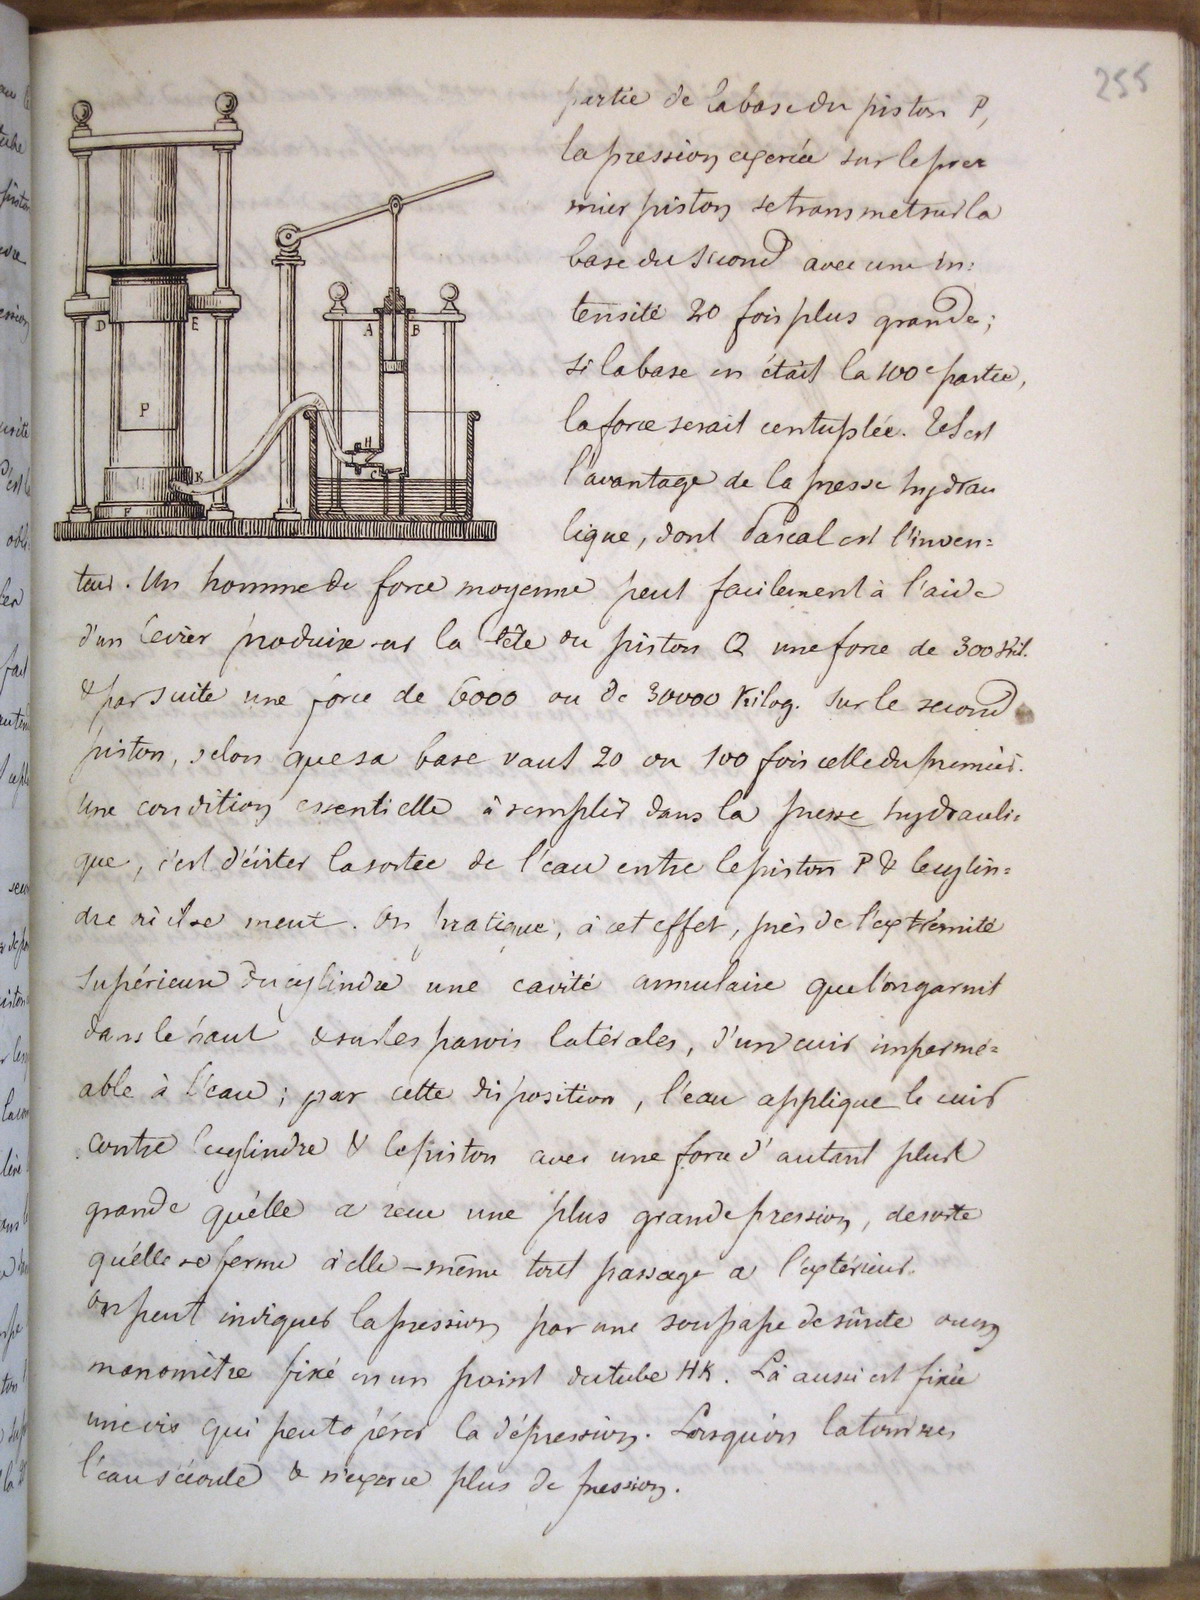 255
partie de la base du piston P,
la pression exercée sur le pre
mier piston se transmet sur la
base du second avec une in=
tensité 20 fois plus grande;
si la base en était la 100e partie,
la force serait centuplée. Tel est
l'avantage de la presse hydrau
lique, dont Pascal est l'inven=
teur. Un homme de force moyenne peut facilement à l'aide
d'un levier produire sur la tête du piston Q une force de 300 Kil.
& par suite une force de 6000 ou de 30000 Kilog. sur le second
piston, selon que sa base vaut 20 ou 100 fois celle du premier.
Une condition essentielle à remplir dans la presse hydrauli=
que, c'est d'éviter la sortie de l'eau entre le piston P & le cylin=
dre où il se meut. On pratique, à cet effet, près de l'extrémité
supérieure du cylindre une cavité annulaire que l'on garnit
dans le haut & sur les parois latérales, d'un cuir imperme=
able à l'eau; par cette disposition, l'eau applique le cuir
contre le cylindre & le piston avec une force d'autant plus
grande qu'elle a reçu une plus grande pression, de sorte
qu'elle se ferme à elle-même tout passage a l'extérieur.
On peut indiquer la pression par une soupape de sûreté ou un
manomètre fixé en un point du tube HK. Là aussi est fixée
une vis qui peut opérer la dépression. Lorsqu'on la tourne
l'eau s'écoule & n'exerce plus de pression.
D
E
A
B
P
H
K
C
F